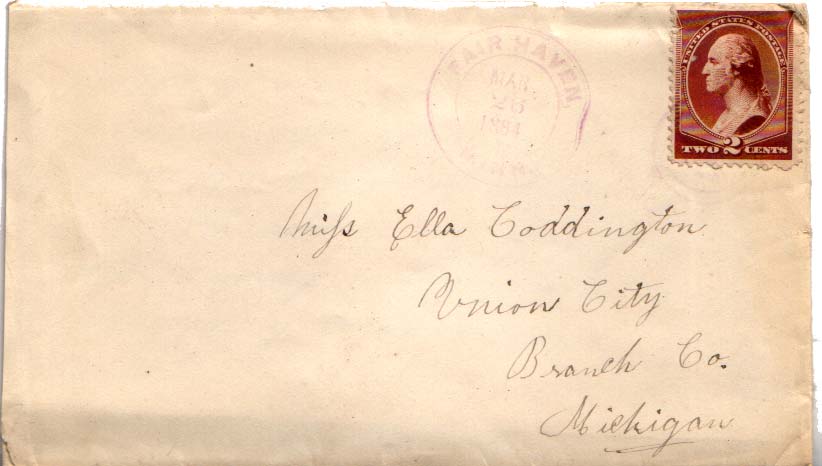 FAIR HAVEN,
MAR.
26
1884
UNITED STATES POSTAGE
TWO 2 CENTS
Miſs Ella Coddington
Union City
Branch Co.
Michigan